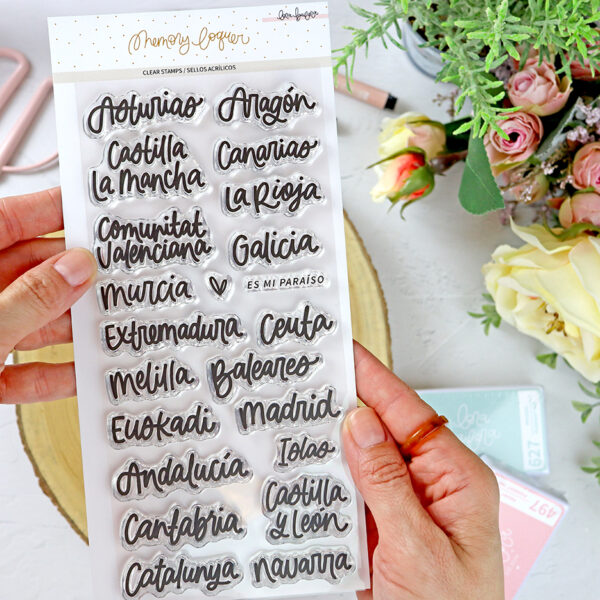 Lora Bailora
Memory loquer
CLEAR STAMPS / SELLOS ACRÍLICOS
Asturias
Aragón
Castilla
La Mancha
Canarias
La Rioja
Comunitat
Valenciana
Galicia
Murcia
ES MI PARAÍSO
Extremadura
Ceuta
Melilla
Baleares
Euskadi
Madrid
Andalucía
Islas
Cantabria
Castilla
y León
Catalunya
Navarra
627
497